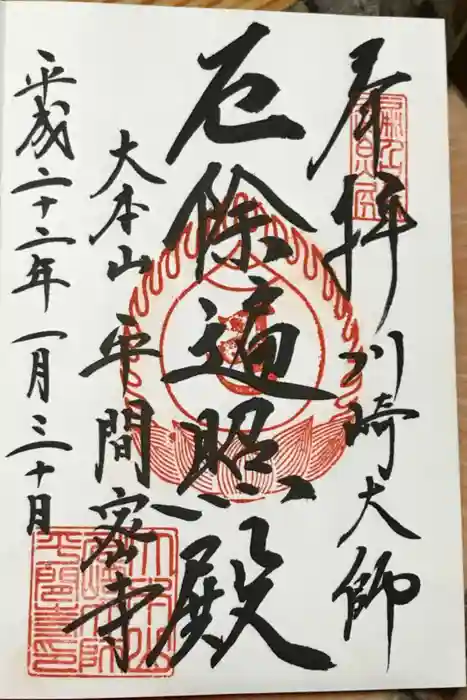 奉拝 川崎大師
厄除遍照殿
大本山 平間密寺
平成二十二年一月三十日